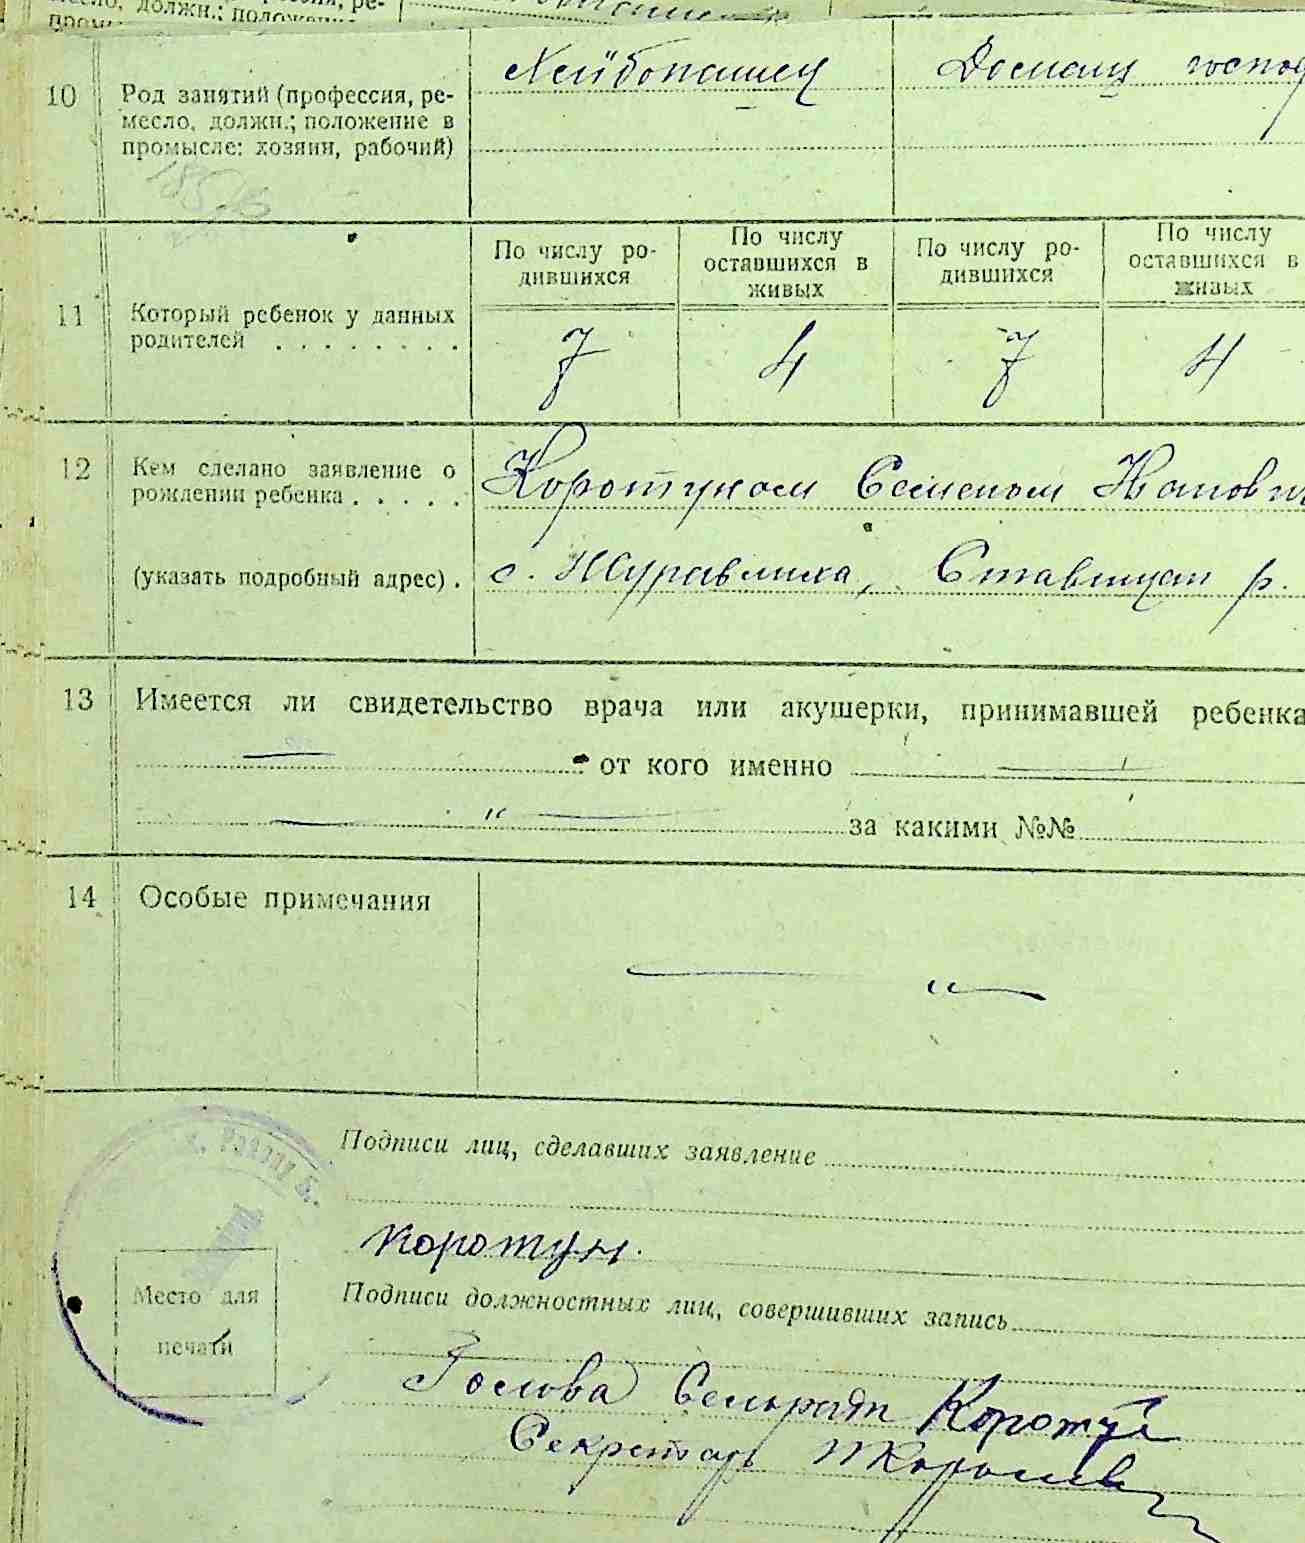 месло, должн.; положение
10
Род занятий (профессия, ре-
месло, должн.; положение в
промысле: хозяин, рабочий)
Хлиборобец
Домаш господ
11
Который ребенок у данных
родителей . . . . . . . .
По числу ро-
дившихся
По числу
оставшихся в
живых
По числу ро-
дившихся
По числу
оставшихся в
живых
7
4
7
4
12
Кем сделано заявление о
рождении ребенка . . . . .
(указать подробный адрес) .
Коротуном Семеном Ивнови
с. Журавлиха, Ставищан р.
13
Имеется ли свидетельство врача или акушерки, принимавшей ребенка
от кого именно
за какими №№
14
Особые примечания
Подписи лиц, сделавших заявление
Коротун.
Место для
печати
Подписи должностных лиц, совершивших запись
Голова Сельради Коротун
Секретарь